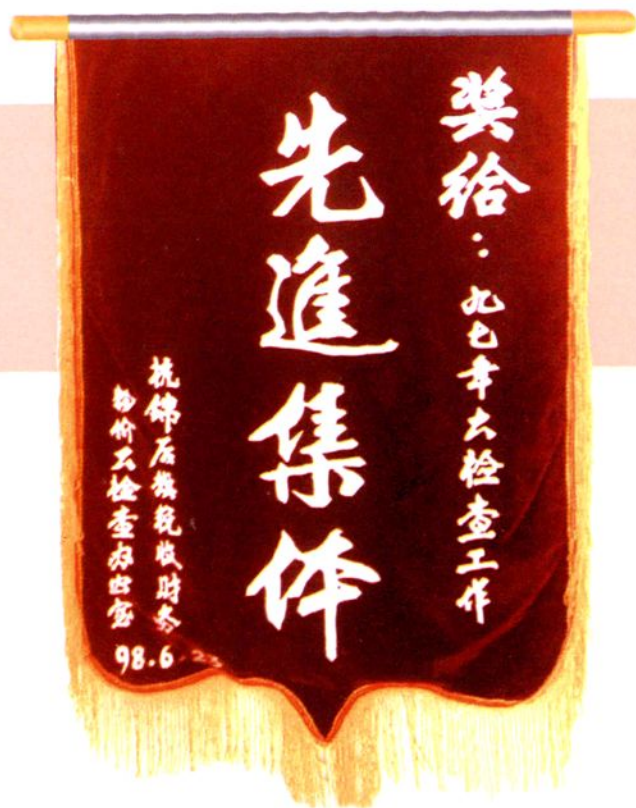 奖给：九七年大检查工作
先進集体
杭锦后旗税收财务
物价大检查办公室
98.6.23